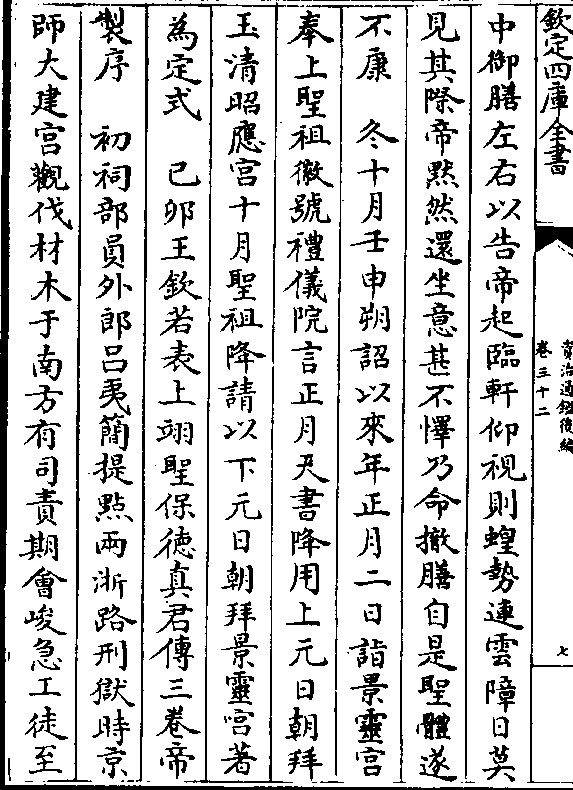 欽定四庫全書
資治通鑑後編
卷三十二
七
中御膳左右以告帝起臨軒仰視則蝗勢連雲障日莫
見其際帝默然還坐意甚不懌乃命撤膳自是聖體遂
不康　冬十月壬申朔詔以來年正月二日詣景靈宮
奉上聖祖徽號禮儀院言正月天書降用上元日朝拜
玉清昭應宮十月聖祖降請以下元日朝拜景靈宮著
為定式　己卯王欽若表上翊聖保德真君傳三卷帝
製序　初祠部員外郎呂夷簡提點兩浙路刑獄時京
師大建宮觀伐材木于南方有司責期會峻急工徒至